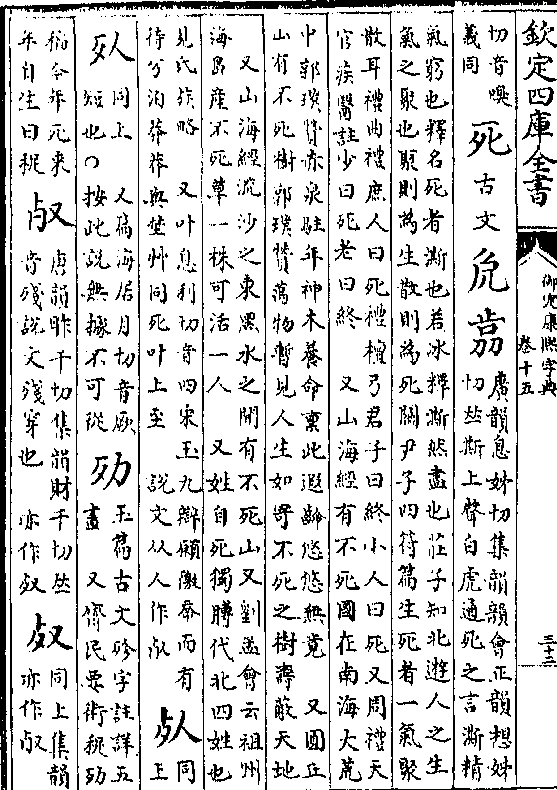 欽定四庫全書
御定康熙字典
卷十五
三十三
切音㗭
義同
死
古文
𠒁
廣韻息姊切集韻韻會正韻想姊
切𠀤斯上聲白虎通死之言澌精
氣窮也釋名死者澌也若冰釋澌然盡也莊子知北遊人之生
氣之聚也聚則為生散則為死關尹子四符篇生死者一氣聚
散耳禮曲禮庶人曰死禮檀弓君子曰終小人曰死又周禮天
官疾醫註少曰死老曰終　又山海經有不死國在南海大荒
中郭璞贊赤泉駐年神木養命稟此遐齡悠悠無竟　又圓丘
山有不死樹郭璞贊萬物暫見人生如寄不死之樹壽蔽天地
又山海經流沙之東黑水之間有不死山又劉孟會云祖州
海島產不死草一株可活一人　又姓自死獨膊代北四姓也
見氏族略　又叶息利切音四宋玉九辯願徼幸而有
待兮泊莽莽與埜艸同死叶上至　說文从人作𣦸
𣦸
同
上
𣦹
同上　又篇海居月切音厥
短也○按此說無據不可從
𣦺
玉篇古文殄字註詳五
畫　又齊民要術秜𣦺
稻今年死來
年自生曰秜
𣦼
唐韻昨干切集韻財干切𠀤
音殘說文殘穿也　亦作𣦻
𣦻
同上集韻
亦作𣦼